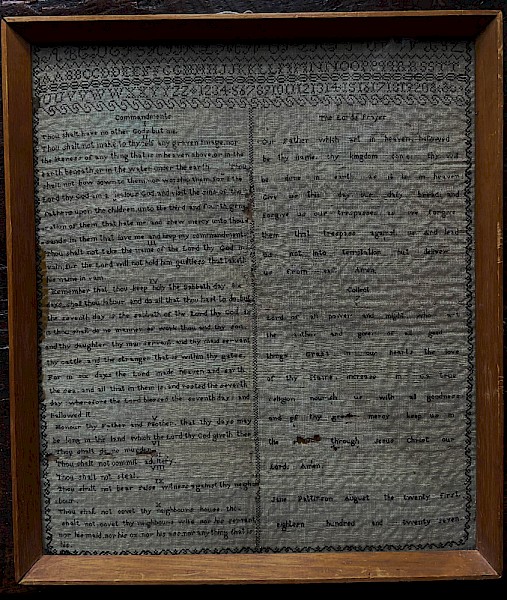 A B B C C D D E E F F G G H H I J J K K L L M M N N O O P P Q Q R R S S
U U V V W W X X Y Y Z Z 1 2 3 4 5 6 7 8 9 10 11 12 13 14 15 16 17 18 19 20
Commandments
Thou shalt have no other Gods but me.
Thou shalt not make to thyself any graven image, nor
the likeness of any thing that is in heaven above, or in the
earth beneath or in the water under the earth
shalt not bow down to them, nor worship them, for I the
Lord thy God am a jealous God, and visit the sins of the
fathers upon the children, unto the third and fourth gene
ration of them that hate me, and shew mercy unto thou
sands in them that love me and keep my commandment
III
Thou shalt not take the name of the Lord thy God in
vain, for the Lord will not hold him guiltless that taketh
his name in vain
Remember that thou keep holy the Sabbath day. Six
days shalt thou labour, and do all that thou hast to do, but
the seventh day is the sabbath of the Lord thy God in
it thou shalt do no manner of work thou and thy son,
and thy daughter, thy man servant, and thy maid servant
thy cattle, and the stranger that is within thy gates.
For in six days the Lord made heaven and earth
the sea, and all that in them is, and rested the seventh
day, wherefore the Lord blessed the seventh day, and
hallowed it
V
Honour thy Father and Mother, that thy days may
be long in the land which the Lord thy God giveth thee
Thou shalt do no murder
Thou shalt not commit adultery
VIII
Thou shalt not steal.
IX
Thou shalt not bear false witness against thy neigh
bour
X
Thou shalt not covet thy neighbours house, thou
shalt not covet thy neighbours wife nor his servant
nor his maid, nor his ox, nor his ass, nor any thing that is
his
The Lords Prayer
Our Father which art in heaven, hallowed
be thy name, thy kingdom come, thy will
be done in earth as it is in heaven
Give us this day our daily bread, and
forgive us our trespasses as we forgive
them that trespass against us and lead
us not into temptation but deliver
us from evil Amen
Collect
Lord of all power and might who art
the author and giver of all good
things Graft in our hearts the love
of thy Name, increase in us true
religion nourish us with all goodness
and of thy great mercy keep us in
the same through Jesus Christ our
Lord. Amen
Jane Pattinson august the twenty first
eighteen hundred and seventy seven